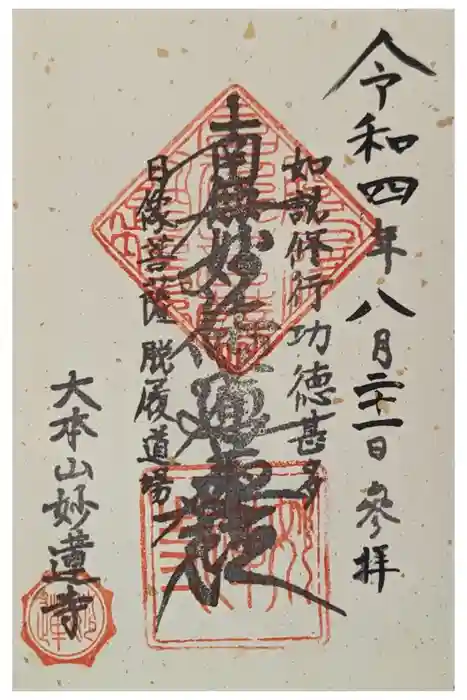 令和四年八月二十一日 參拝
如説修行功徳甚多
南無妙法蓮華経
日像菩薩 脱履道場
大本山妙蓮寺